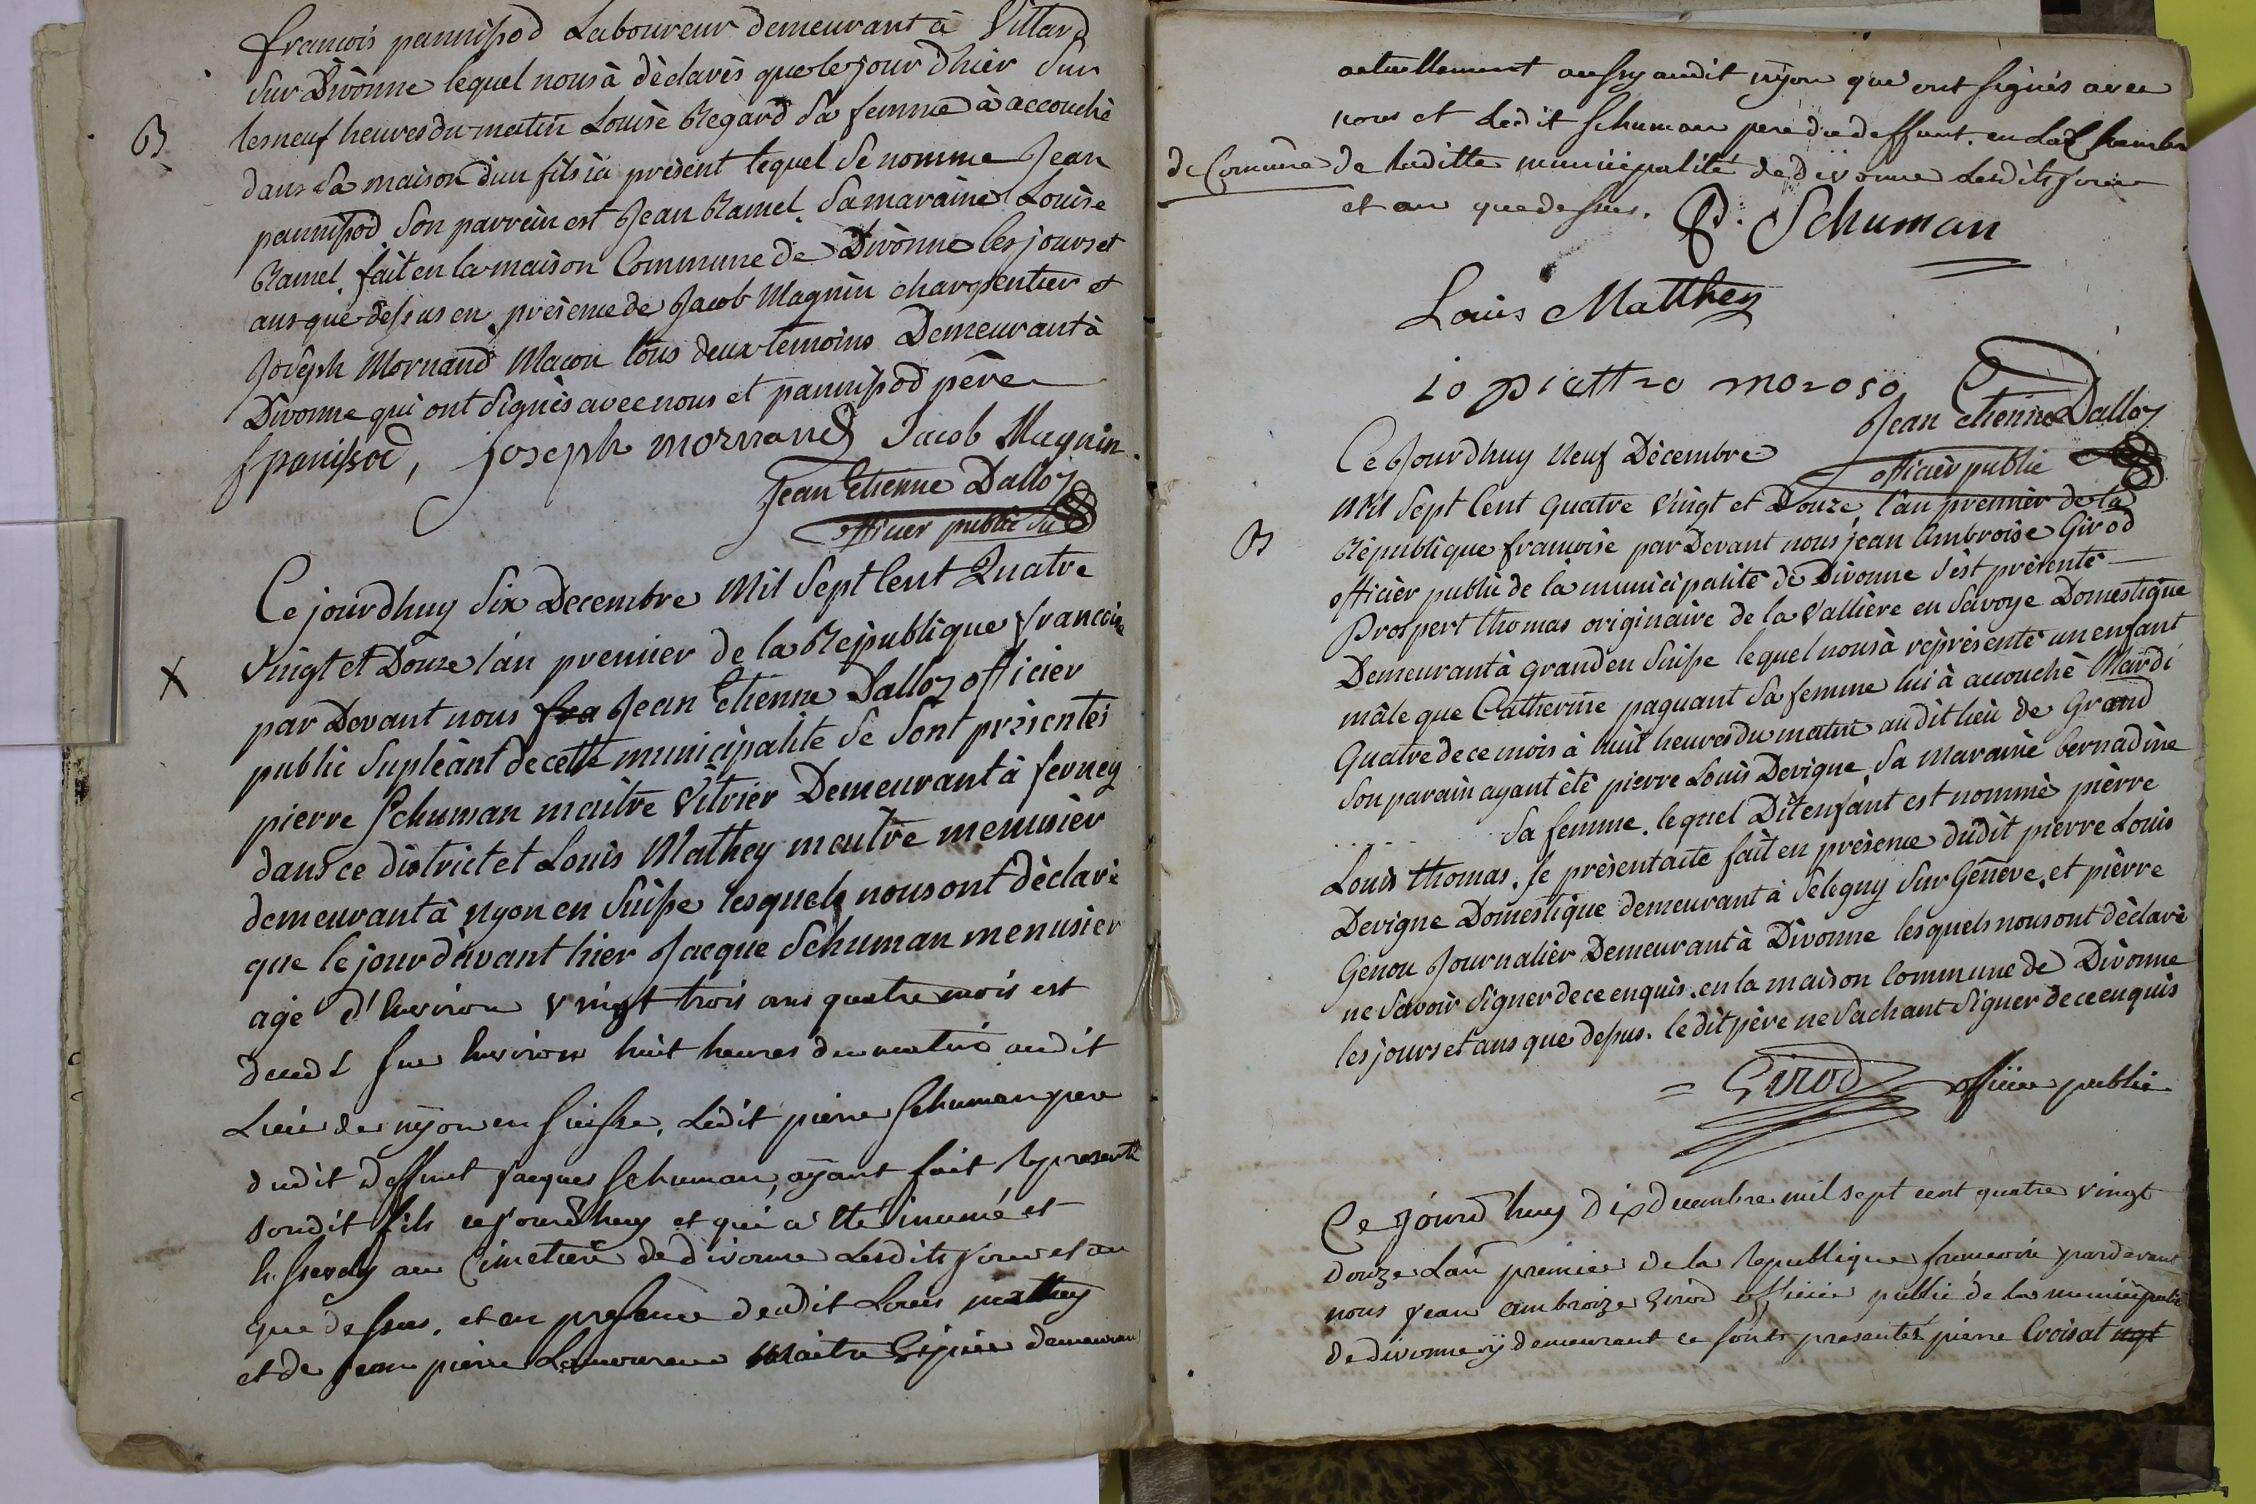 françois pannissod Laboureur demeurant à Villard
Sur Divonne lequel nous à dèclarès que le jour d'hier Sur
B
les neuf heures du matin Louise Regard Sa femme à accouchè
dans Sa maison d'un fils ici prèsent lequel Se nomme Jean
pannissod Son parrain est Jean Ramel. Sa maraine Louise
Ramel. fait en la maison Commune de Divonne les jours et
ans que dessus en prèsence de Jacob Magnin charpentier et
Joseph Mornand Macon tous deux temoins Demeurant à
Divonne qui ont Signès avec nous et pannissod père
f panissod, joseph mornand Jacob Magnin
Jean Etienne Dalloz
officier public Su
Ce jourdhuy Six Decembre Mil Sept Cent Quatre
X
Vingt et Douze l'an premier de la Rèpublique francoise
par Devant nous fra Jean Etienne Dalloz officier
public Suplèant de cette municipalité Se Sont prèsentès
pierre Schuman maitre Vitrier Demeurant à ferney
dans ce district et Louis Mathey maitre menusier
demeurant à nyon en Suisse lesquels nous ont dèclarè
que le jour d'avant hier Jacque Schuman menusier
agé d'Environ vingt trois ans quatre mois est
dud Sur Environ huit heures du matin audit
Lieu de nyon en Suisse, Ledit pierre Schuman pere
dudit deffunt Jacques Schuman, ayant fait Representé
Sondit fils cejourdhuy et qui a Eté inumé et
au Cimetiere de divonne Lesdits jour et an
que dessus, et en presence dudit Louis mathey
et de jean pierre maitre demeurant
actuellement aussy audit nyon qui ont signés avec
nous et Ledit Schuman pere du deffunt. en La Chambre
de Comune de laditte municipalité de divonne Lesdits jour
et an que dessus. P. Schuman
Louis Matthey
io piettro moroso
Jean Etienne Dalloz
officier public
Ce Jourdhuy Neuf Dècembre
Mil Sept Cent Quatre Vingt et Douze, l'an premièr de la
B
Rèpublique francoise par Devant nous, jean Ambroise Girod
officièr public de la municipalité de Divonne S'est prèsentè
Prospert thomas originaire de la Vallière en Savoye Domestique
Demeurant à Grand en Suisse lequel nous à reprèsentè un enfant
mâle que Catherine paquant Sa femme lui à accouchè Mardi
Quatre de ce mois à huit heures du matin au dit lieu de Grand
Son parain ayant ètè pierre Louis Devigne, Sa Maraine bernadine
. . . . . Sa femme. lequel Dit enfant est nommè pièrre
Louis thomas. le prèsent acte fait en prèsence dudit pierre Louis
Devigne Domestique demeurant à Seligny Sur Genève, et pièrre
Genou Journalier Demeurant à Divonne lesquels nous ont dèclarè
ne Savoir Signer de ce enquis. en la maison Commune de Divonne
les jours et ans que dessus. le dit père ne Sachant Signer de ce enquis
= Girod officier public
Ce jourd'huy Dix decembre mil sept cent quatre vingt
douze Lan premier de la Republique francoise pardevant
nous jean ambroize Girod officier public de la municipalité
de divonne y demeurant ce sonts presentés pierre Croisat